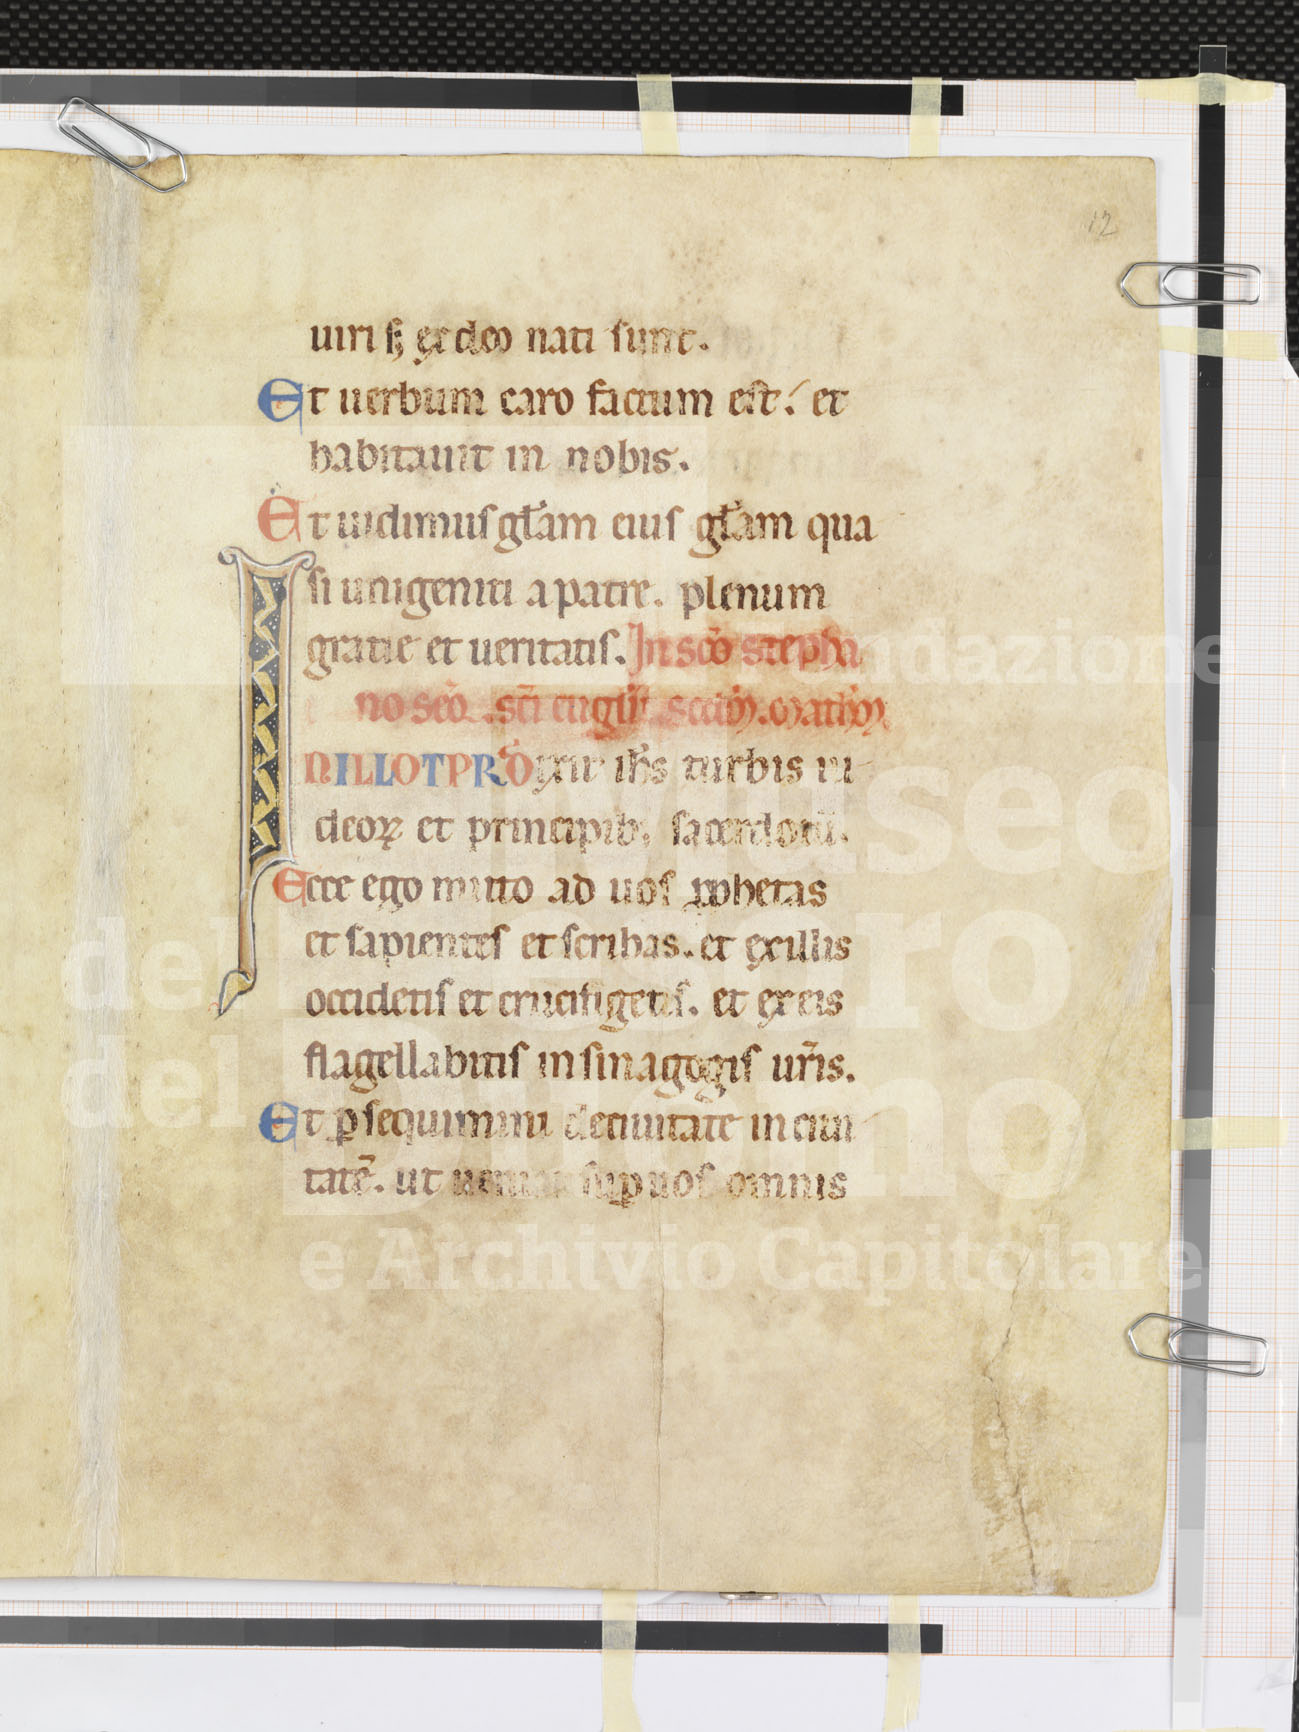 12
uiri sꝫ ex deo nati sunt.
Et uerbum caro factum est. et
habitauit in nobis.
Et uidimus gl̃am eius gl̃am qua
si unigeniti a patre. plenum
gratie et ueritatis. In sc̃o stepha
no scd̃m
INILLOTPR̃ Dixit ih̃s turbis iu
deoꝝ et principib; sacerdotũ.
Ecce ego mitto ad uos ꝓphetas
et sapientes et scribas. et ex illis
occidetis et crucifigetis. et ex eis
flagellabitis in sinagogis ur̃is.
Et ꝑsequimini de ciuitate in ciui
tatẽ. ut ueniat suꝑ uos omnis
Fondazione
Museo
dell'Opera
del Duomo
e Archivio Capitolare